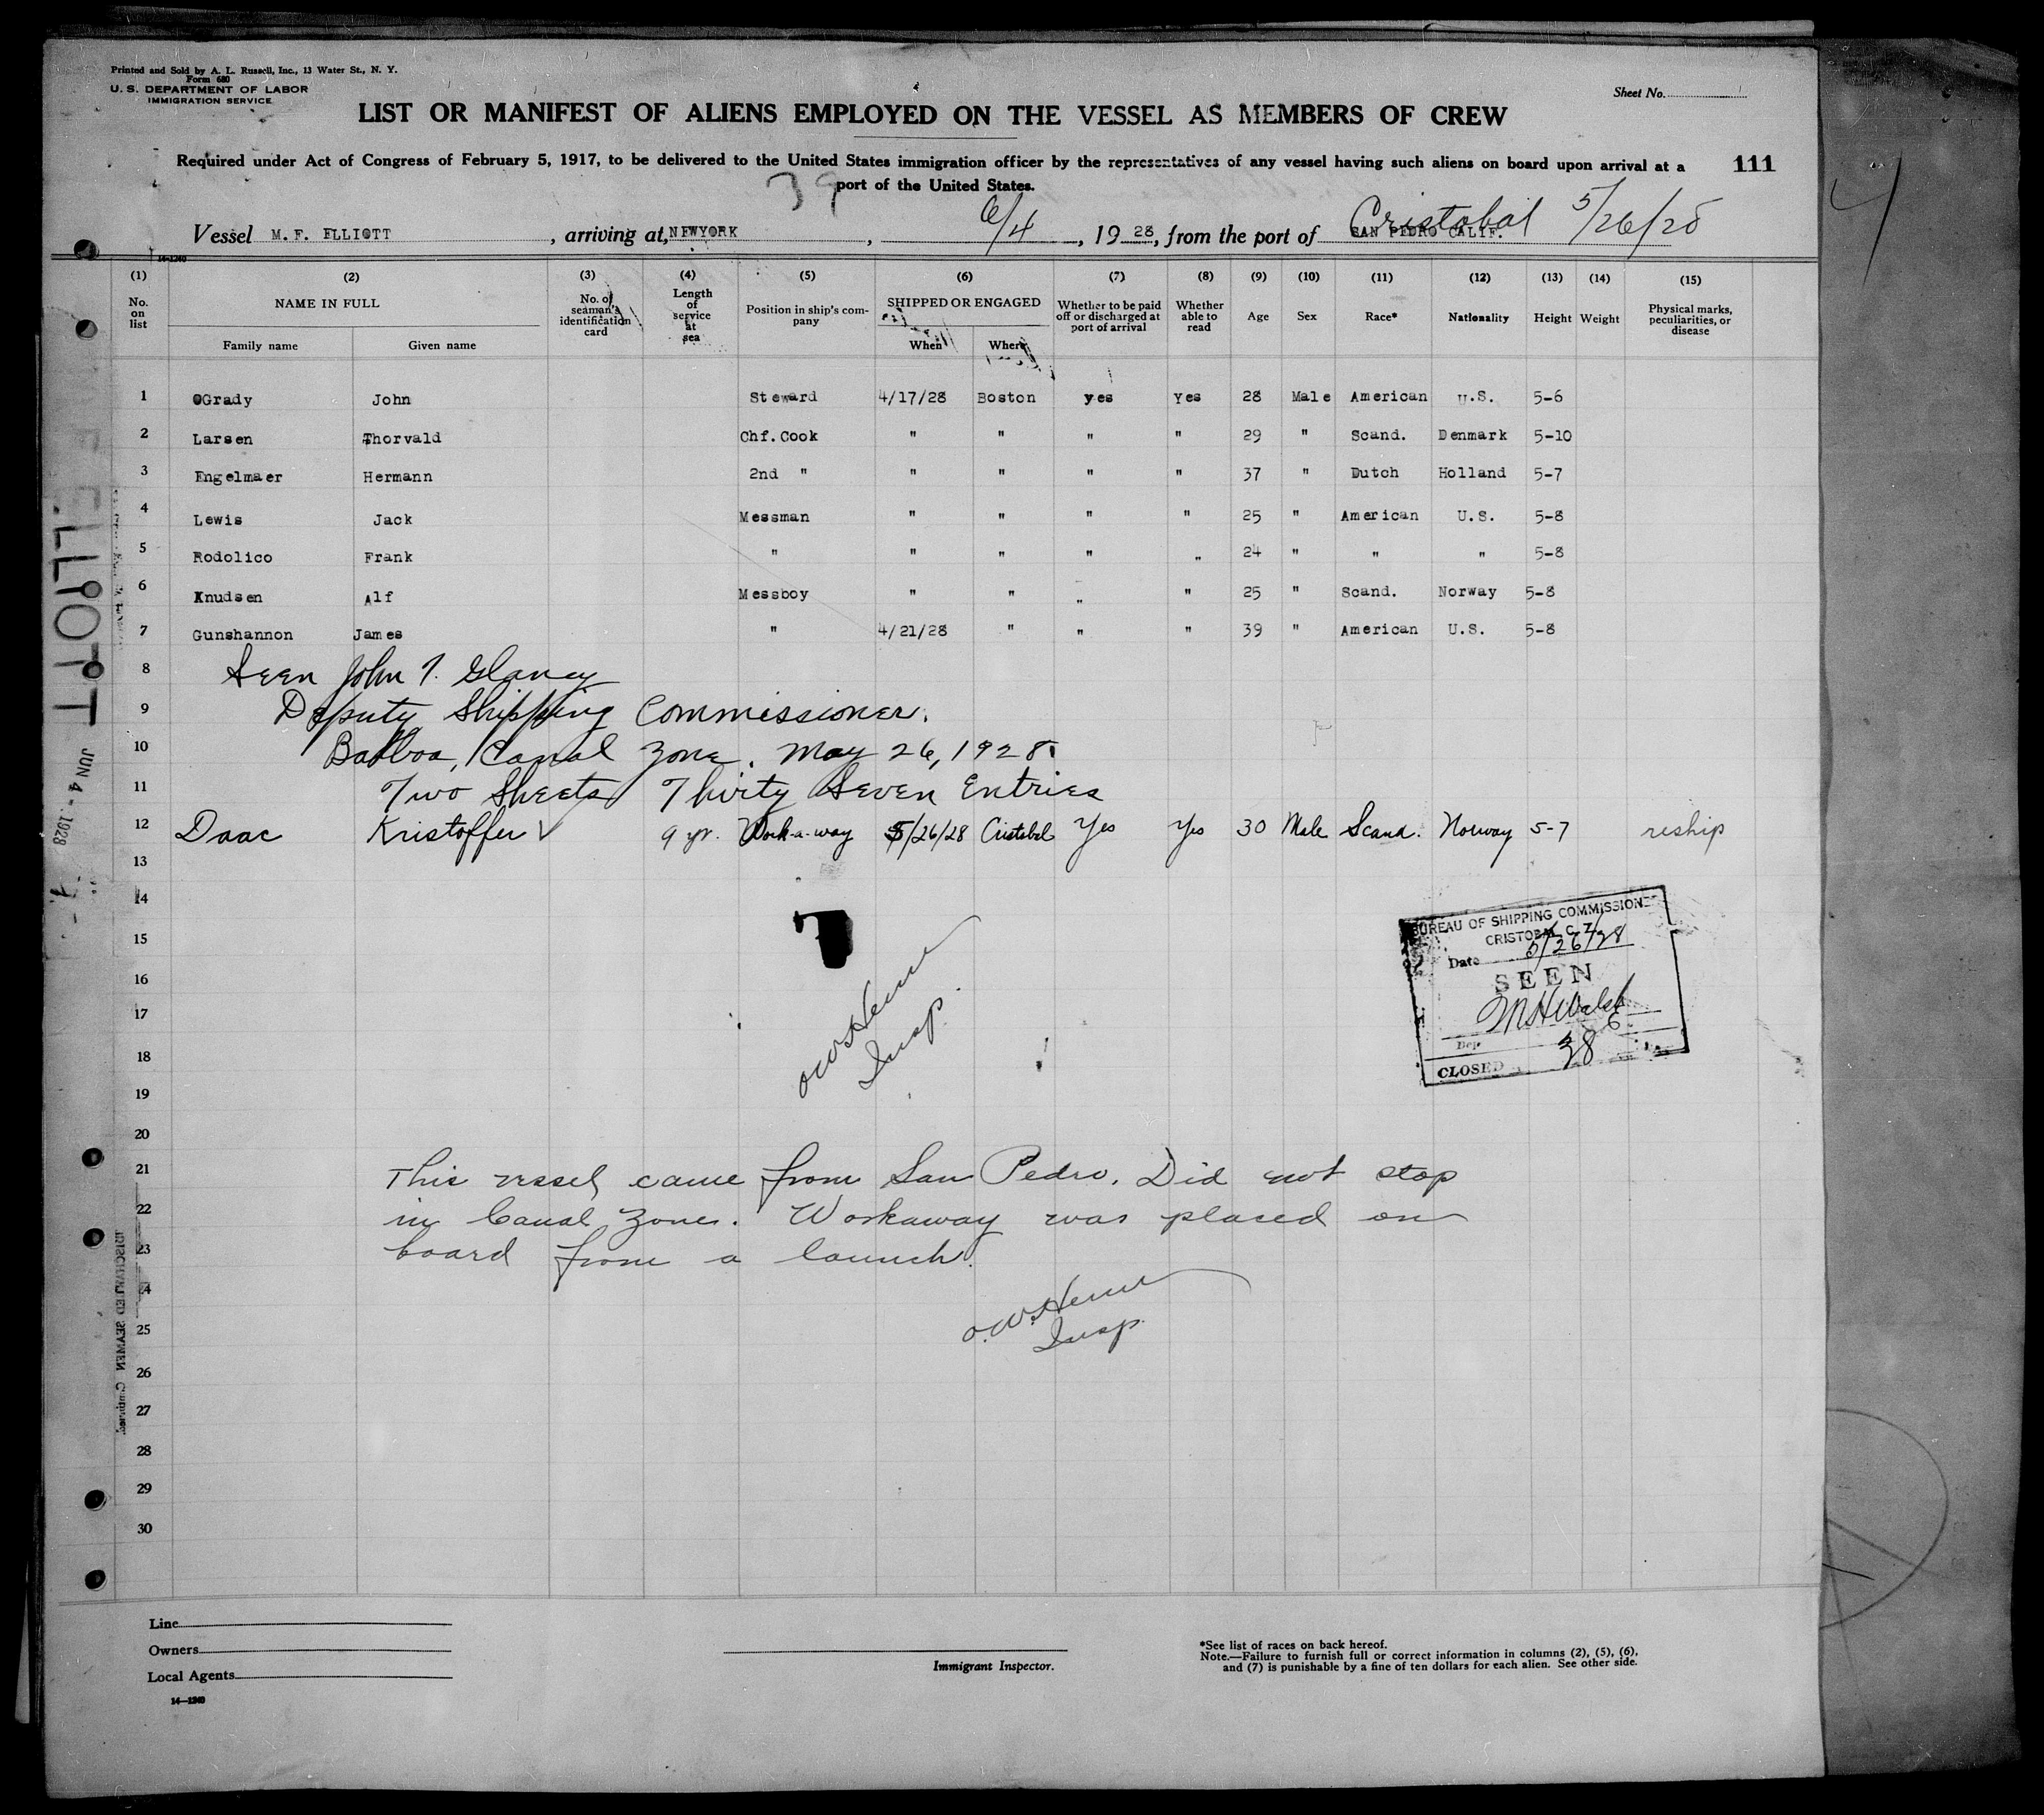 Printed and Sold by A. L. Russell, Inc., 13 Water St., N. Y.
Form 680
U. S. DEPARTMENT OF LABOR
IMMIGRATION SERVICE
Sheet No.
LIST OR MANIFEST OF ALIENS EMPLOYED ON THE VESSEL AS MEMBERS OF CREW
Required under Act of Congress of February 5, 1917, to be delivered to the United States immigration officer by the representatives of any vessel having such aliens on board upon arrival at a
port of the United States.
111
39
Vessel M. F. ELLIOTT, arriving at, NEWYORK, 6/4, 1928, from the port of SAN PEDRO CALIF. Cristobal 5/26/28
14-1240
(1) (2) (3) (4) (5) (6) (7) (8) (9) (10) (11) (12) (13) (14) (15)
No. on list NAME IN FULL No. of seaman's identification card Length of service at sea Position in ship's company SHIPPED OR ENGAGED Whether to be paid off or discharged at port of arrival Whether able to read Age Sex Race* Nationality Height Weight Physical marks, peculiarities, or disease
Family name Given name When Where
1 OGrady John Steward 4/17/28 Boston yes Yes 28 Male American U.S. 5-6
2 Larsen Thorvald Chf.Cook " " " " 29 " Scand. Denmark 5-10
3 Engelmaer Hermann 2nd " " " " " 37 " Dutch Holland 5-7
4 Lewis Jack Messman " " " " 25 " American U.S. 5-8
5 Rodolico Frank " " " " " 24 " " " 5-8
6 Knudsen Alf Messboy " " " " 25 " Scand. Norway 5-8
7 Gunshannon James " 4/21/28 " " " 39 " American U.S. 5-8
8 Seen John T. Glancy
9 Deputy Shipping Commissioner.
10 Balboa, Canal Zone. May 26, 1928.
11 Two Sheets Thirty Seven Entries
12 Daae Kristoffer 9 yr. Work-a-way 5/26/28 Cristobal Yes Yes 30 Male Scand. Norway 5-7 reship
13
14
15
16
17
18
19
20
BUREAU OF SHIPPING COMMISSIONER
CRISTOBAL, C. Z.
Date 5/26/28
SEEN
Dep.
CLOSED 38
Insp.
21 This vessel came from San Pedro. Did not stop
22 in Canal Zone. Workaway was placed on
23 board from a launch.
24
Insp.
25
26
27
28
29
30
ELLIOTT
JUN 4 - 1928
Line
Owners
Local Agents
14—1240
Immigrant Inspector.
*See list of races on back hereof.
Note.—Failure to furnish full or correct information in columns (2), (5), (6),
and (7) is punishable by a fine of ten dollars for each alien. See other side.